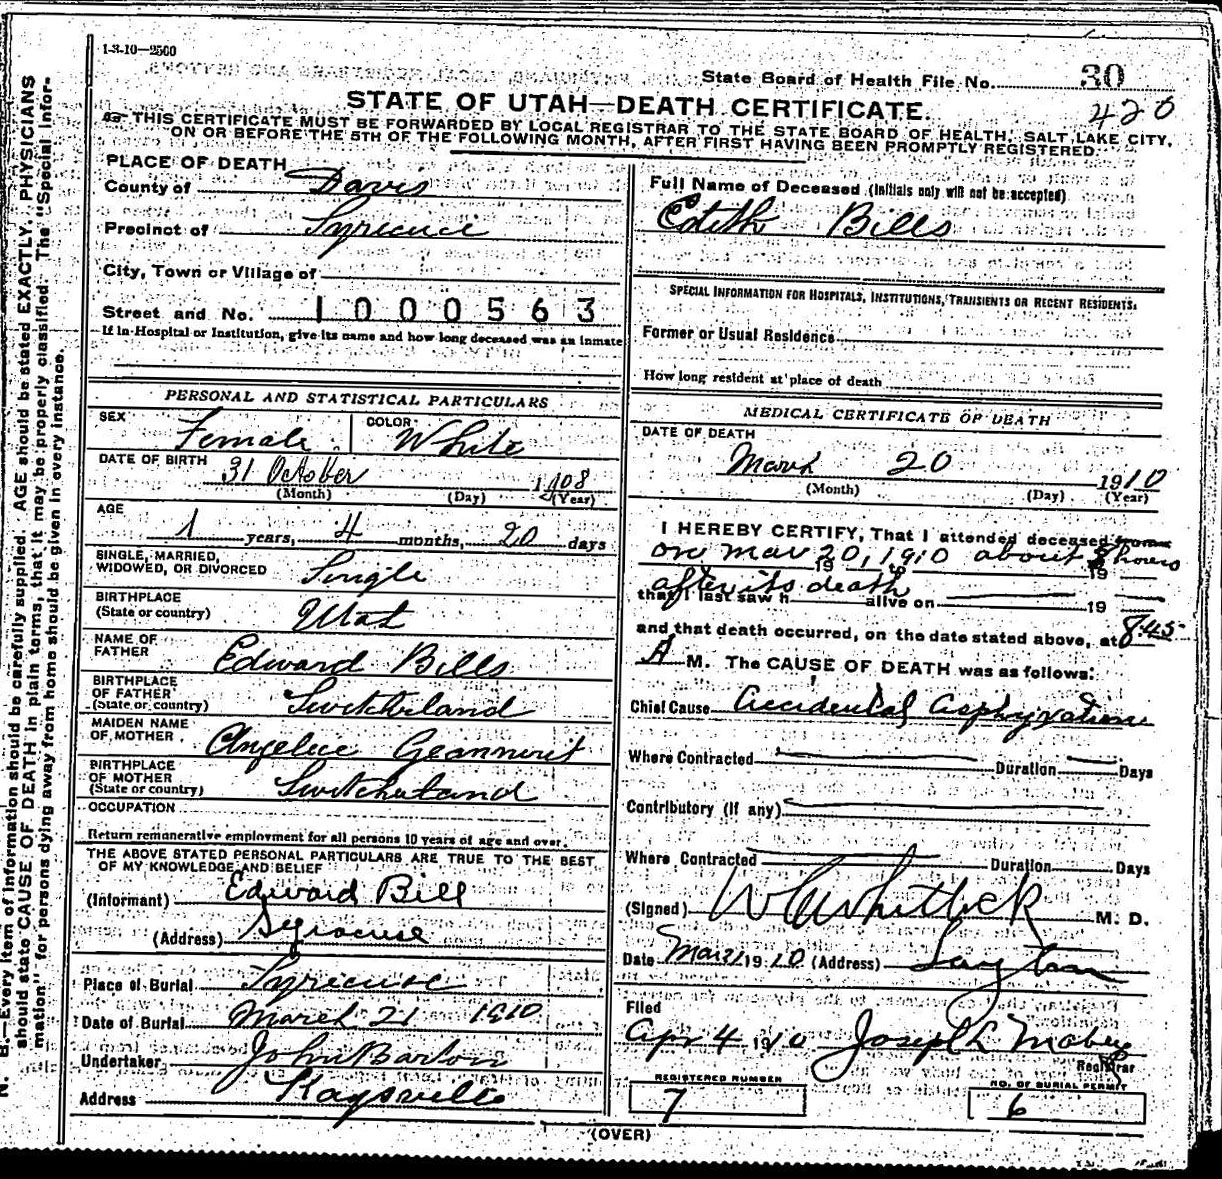 1-3-10—2500
State Board of Health File No. 30
420
STATE OF UTAH—DEATH CERTIFICATE.
THIS CERTIFICATE MUST BE FORWARDED BY LOCAL REGISTRAR TO THE STATE BOARD OF HEALTH, SALT LAKE CITY,
ON OR BEFORE THE 5TH OF THE FOLLOWING MONTH, AFTER FIRST HAVING BEEN PROMPTLY REGISTERED.
PLACE OF DEATH
County of Davis
Precinct of
City, Town or Village of
Street and No. 1000563
If in Hospital or Institution, give its name and how long deceased was an inmate
PERSONAL AND STATISTICAL PARTICULARS
SEX Female COLOR White
DATE OF BIRTH 31 October 1908
(Month) (Day) (Year)
AGE
1 years, 4 months, 20 days
SINGLE, MARRIED,
WIDOWED, OR DIVORCED Single
BIRTHPLACE
(State or country) Utah
NAME OF
FATHER Edward Bills
BIRTHPLACE
OF FATHER
(State or country) Switzerland
MAIDEN NAME
OF MOTHER Angeline
BIRTHPLACE
OF MOTHER
(State or country) Switzerland
OCCUPATION
Return remunerative employment for all persons 10 years of age and over.
THE ABOVE STATED PERSONAL PARTICULARS ARE TRUE TO THE BEST
OF MY KNOWLEDGE AND BELIEF
(Informant) Edward Bill
(Address) Syracuse
Place of Burial Syracuse
Date of Burial March 21 1910
Undertaker John Barton
Address Kaysville
Full Name of Deceased (Initials only will not be accepted)
Edith Bills
SPECIAL INFORMATION FOR HOSPITALS, INSTITUTIONS, TRANSIENTS OR RECENT RESIDENTS.
Former or Usual Residence
How long resident at place of death
MEDICAL CERTIFICATE OF DEATH
DATE OF DEATH
March 20 1910
(Month) (Day) (Year)
I HEREBY CERTIFY, That I attended deceased from
on Mar 20, 1910 about 8 hours
19 to 19
after its death
that I last saw h alive on 19
and that death occurred, on the date stated above, at 8.45
A M. The CAUSE OF DEATH was as follows:
Chief Cause Accidental Asphyxation
Where Contracted Duration Days
Contributory (if any)
Where Contracted Duration Days
(Signed) Whitlock M. D.
Date Mar 21 1910 (Address) Layton
Filed
Apr 4 1910 Joseph L Mabey
Registrar
REGISTERED NUMBER
7
NO. OF BURIAL PERMIT
6
(OVER)
N. B.—Every item of information should be carefully supplied. AGE should be stated EXACTLY. PHYSICIANS
should state CAUSE OF DEATH in plain terms, that it may be properly classified. The "Special Infor-
mation" for persons dying away from home should be given in every instance.